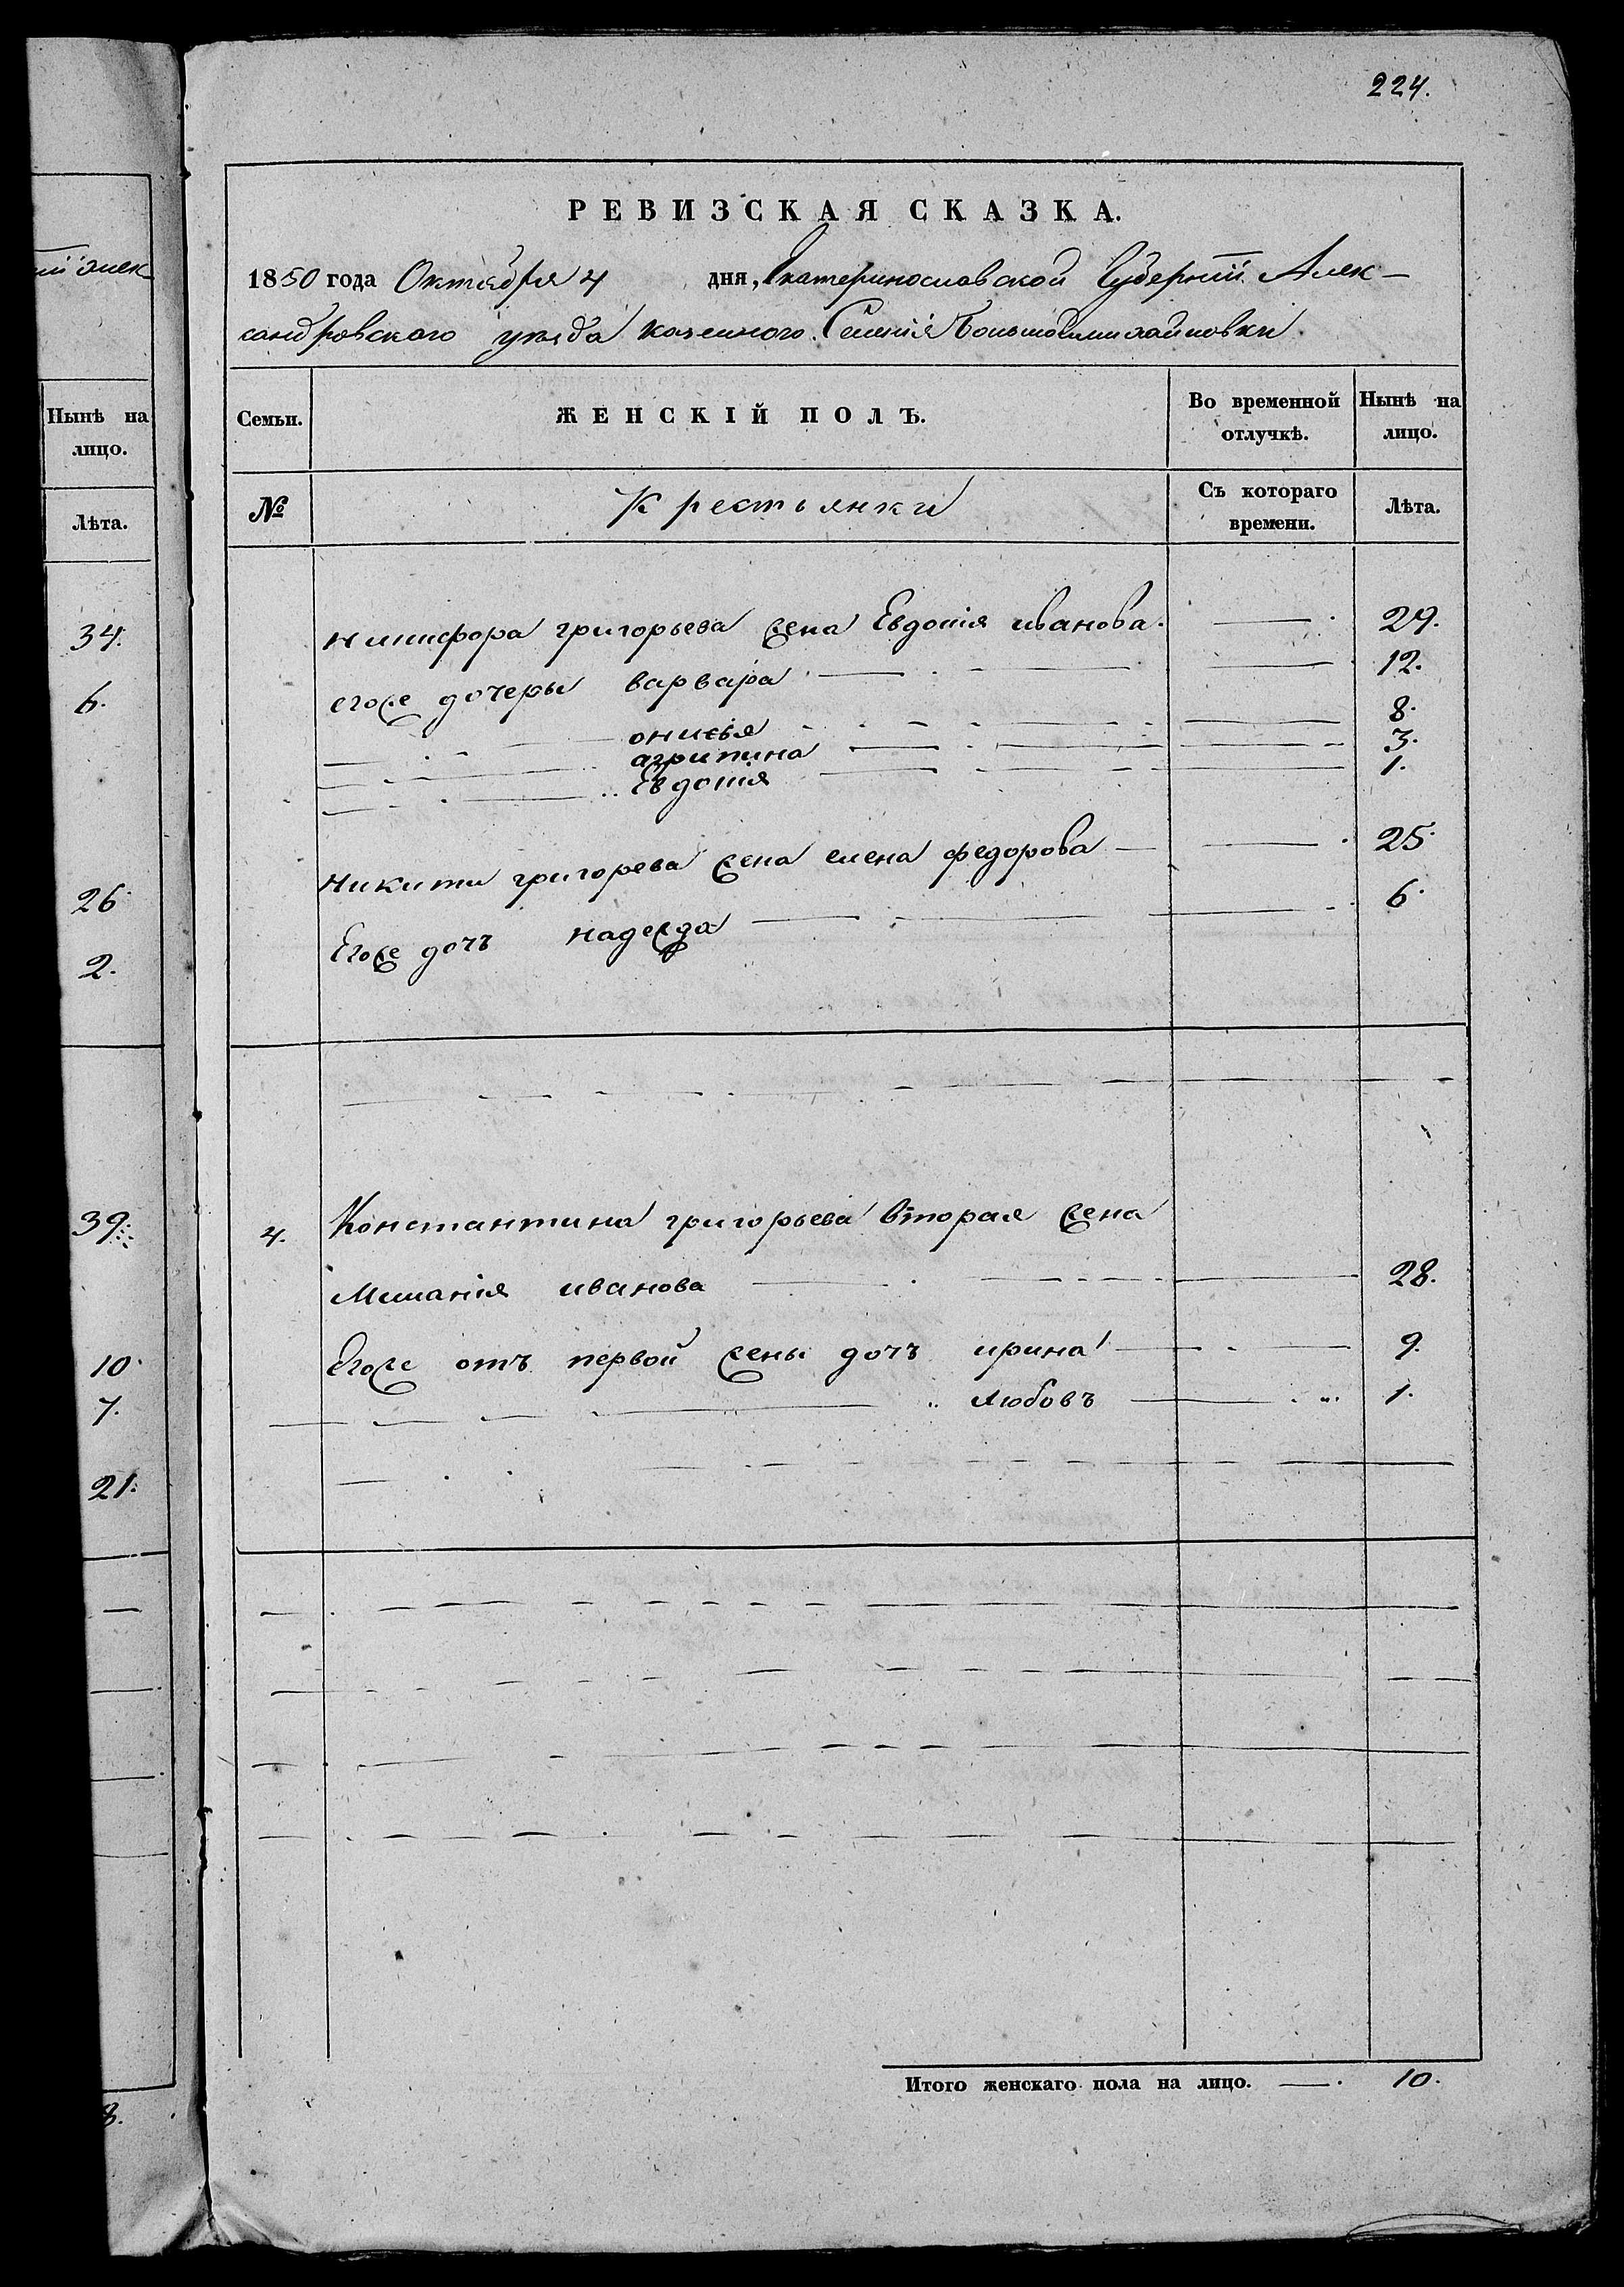 224.
РЕВИЗСКАЯ СКАЗКА.
1850 года Октября 4 дня, Екатеринославской Губернiи Алек-
сандровского уезда казенного Селенiя Большемихайловки
Семьи.
ЖЕНСКIЙ ПОЛЪ.
Во временной отлучкѣ.
Нынѣ на лицо.
№
Крестьянки
Съ котораго времени.
Лѣта.
никифора григорьева жена Евдокiя иванова. 29.
егоже дочеры варвара 12.
онисья 8.
агрипина 3.
Евдокiя 1.
Никиты григорева жена елена федорова 25
Егоже дочъ надежда 6
4. Константина григорьева вторая жена
Миланiя иванова 28.
Егоже отъ первой жены дочъ ирина 9.
любовъ 1.
Итого женскаго пола на лицо. 10.
Нынѣ на
лицо.
Лѣта.
34.
6.
26
2.
39
10
7.
21.